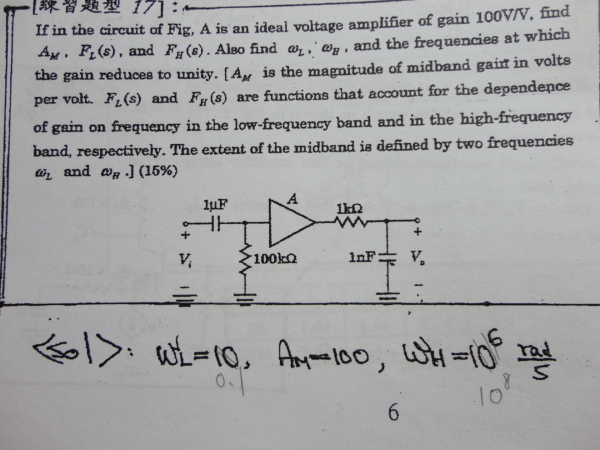 [練習題型 17]:
If in the circuit of Fig, A is an ideal voltage amplifier of gain 100V/V, find
A_M, F_L(s), and F_H(s). Also find ω_L, ω_H, and the frequencies at which
the gain reduces to unity. [A_M is the magnitude of midband gain in volts
per volt. F_L(s) and F_H(s) are functions that account for the dependence
of gain on frequency in the low-frequency band and in the high-frequency
band, respectively. The extent of the midband is defined by two frequencies
ω_L and ω_H.] (15%)
1μF
A
1kΩ
+
V_i
-
100kΩ
1nF
+
V_o
-
<sol>: W_L=10, A_M=100, W_H=10^6 rad/s
0.1
10^8
6